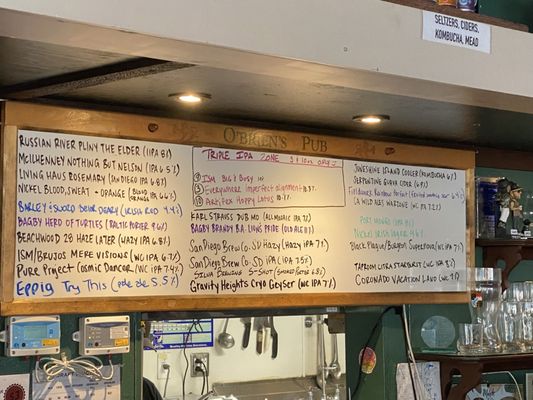 SELTZERS, CIDERS,
KOMBUCHA, MEAD
O'BRIEN'S PUB
RUSSIAN RIVER PLINY THE ELDER (IIPA 8%)
McILHENNEY NOTHING BUT NELSON (IPA 6.5%)
LIVING HAUS ROSEMARY (SAN DIEGO IPA 6.8%)
NICKEL BLOOD, SWEAT - ORANGE (BLOOD ORANGE IPA
BARLEY & SWORD DEIRR DEARY (IRISH RED 4.4%)
BAGBY HERD OF TURTLES (BALTIC PORTER
BEACHWOOD 28 HAZE LATER (HAZY IPA 6.8%)
ISM/BRUJOS MERE VISIONS (WC IPA 6.7%)
PURE Project Cosmic Dancer (WC IPA 7.4%)
Eppig Try This (pale ale 5.5%)
TRIPLE IPA ZONE
ISM BIG & BUSY 10%
Everywhere Imperfect alignment
Park, Fox Happy Lotus
KARL STRAUSS DUB MO (ALL MOSAIC IPA 7%)
BAGBY BRANDY B.A. LIONS PRIDE (OLD ALE
SAN Diego Brew Co. SD Hazy (Hazy IPA 7%)
SAN Diego Brew Co. SD IPA (IPA 7.5%)
SILVA BREWING 5-SHOT
Gravity Heights Cryo Geyser (WC IPA 7%)
JUNESHINE ISLAND COOLER (KOMBUCHA 6%)
SERPENTINE GUAVA CIDER (6%)
(A WILD ALE
PORT MONGO (IPA
NICKEL IRISH
Black Plague/Burgeon Supernova (WC IPA 7%)
TAPROOM CITRA STARBURST (WC IPA
CORONADO VACATION LAND (WC IPA